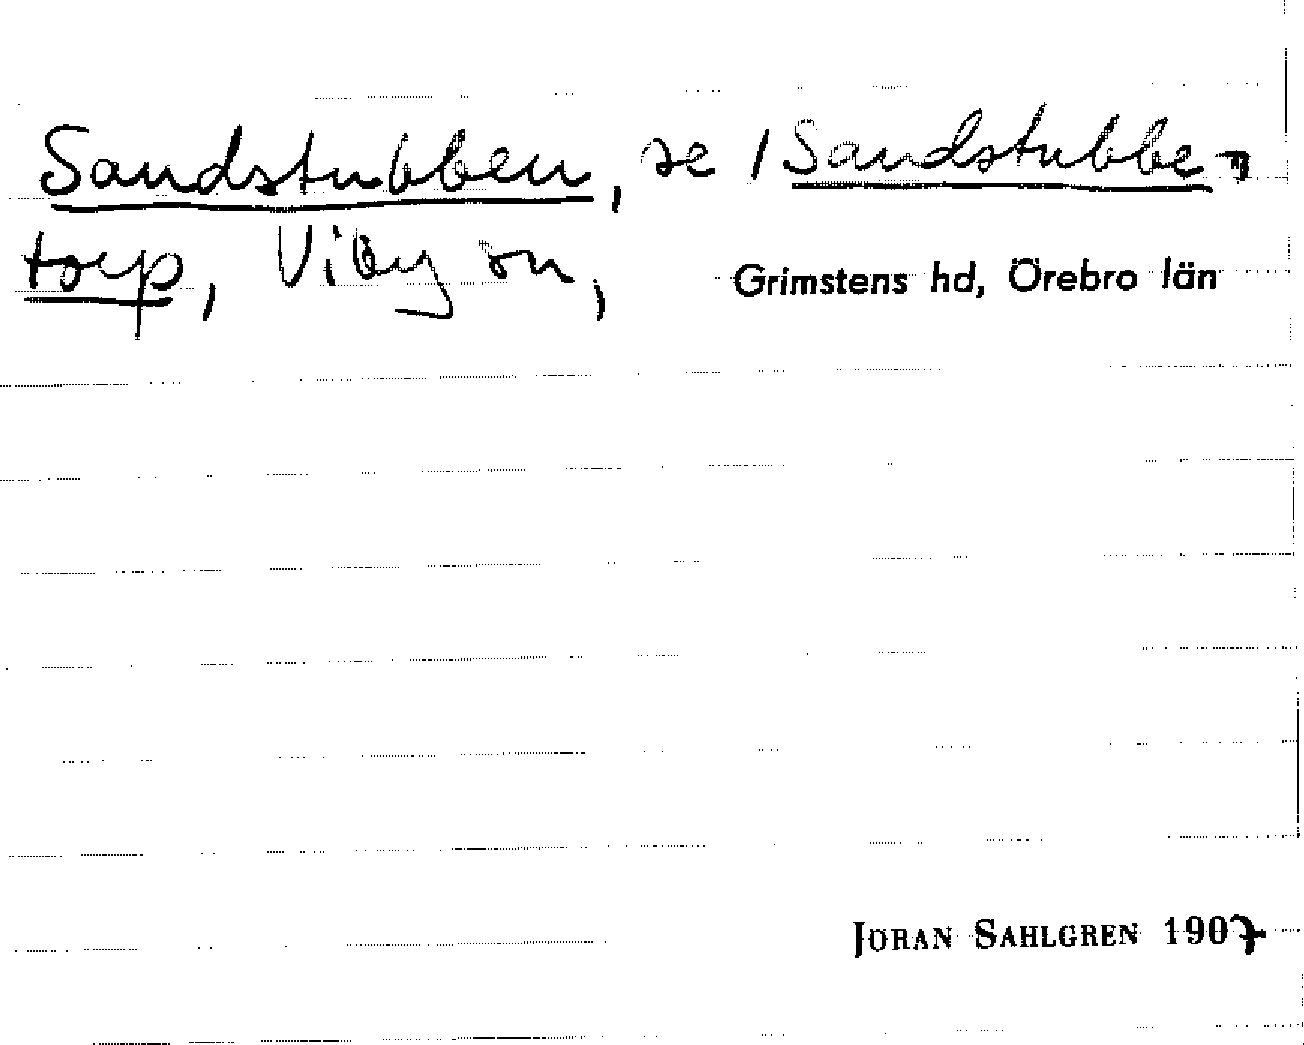 Sandstubben, se /Sandstubbe-
torp, Viby sn, Grimstens hd, Örebro län
JÖRAN SAHLGREN 1907